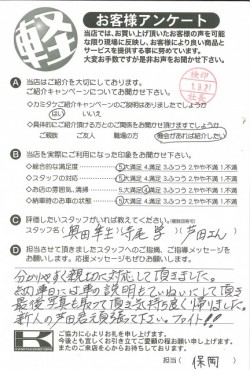 軽
お客様アンケート
当店では、お買い上げ頂いたお客様の声を可能な限り現場に反映し、お客様により良い商品とサービスを提供する事に努めています。
大変お手数ですが是非お声をお聞かせ下さい。
A 当店はご紹介を大切にしております。
ご紹介キャンペーンについてお聞かせ下さい。
◇カミタケご紹介キャンペーンのご説明はありましたでしょうか
はい いいえ
◇具体的にご紹介頂ける方とのご関係をお聞かせ頂けますでしょうか
ご親族 ご友人 職場の方 機会があれば紹介したい
B 当店を実際にご利用になった印象をお聞かせ下さい。
◇総合的な満足度 5大満足 4.満足 3.ふつう 2.やや不満 1.不満
◇スタッフの対応 5大満足 4.満足 3.ふつう 2.やや不満 1.不満
◇お店の雰囲気、清掃 5.大満足 4.満足 3.ふつう 2.やや不満 1.不満
◇納車時のお車の状態 5大満足 4.満足 3.ふつう 2.やや不満 1.不満
C 評価したいスタッフがいれば教えてください。
スタッフ名
D 担当させて頂きましたスタッフへのご指摘、ご指導メッセージをお願いします。応援メッセージもぜひお願いします。
分かりやすく親切に対応して頂きました。
納車日には車の説明もていねいにして頂き
最後写真も取って頂き気持ち良く帰りました。
新人の芦田君元気張って下さい。ファイト!!
ご協力に心よりお礼を申し上げます。
今後とも宜しくお引き立てご愛顧の程お願い申し上げます。
またのご来店を心からお待ちしております。
担当( 保岡 )